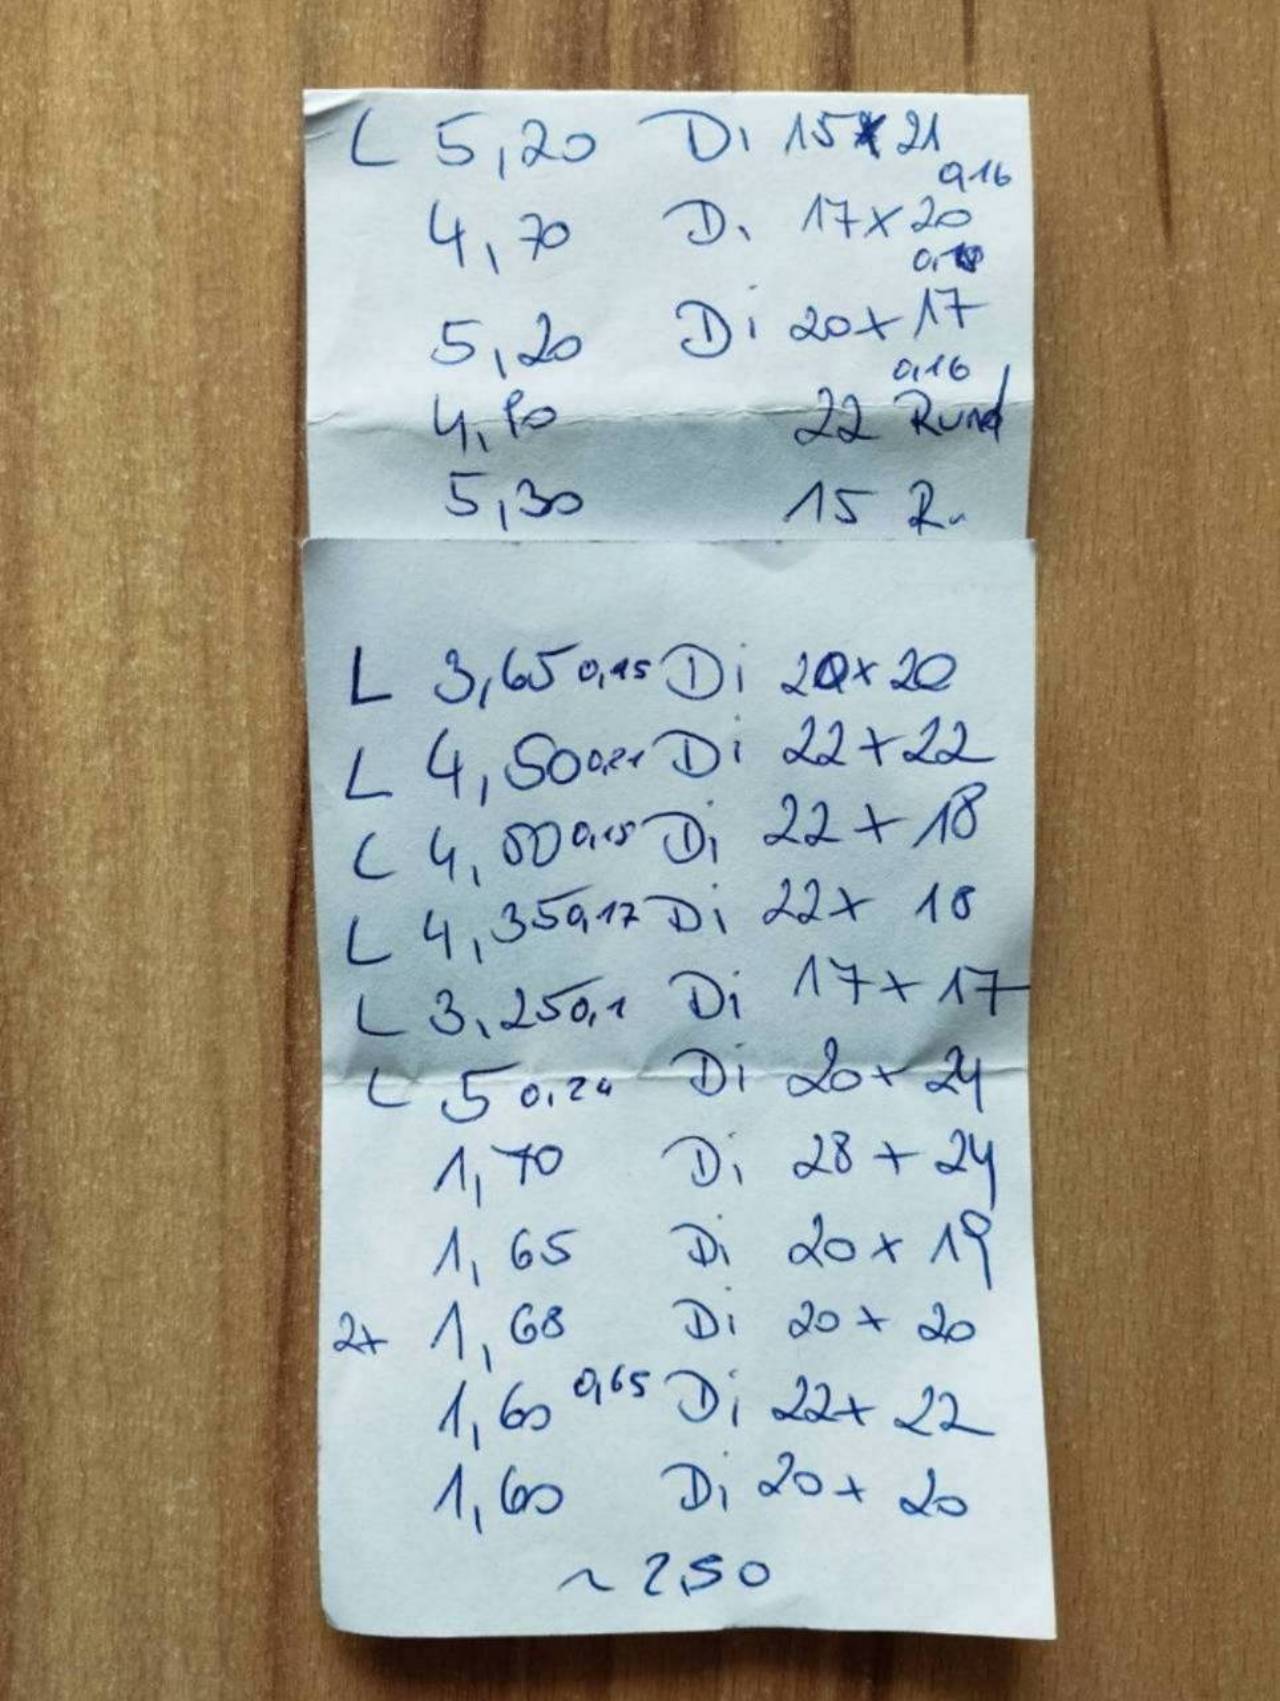 L 5,20 Di 15x21
0,16
4,70 Di 17x20
5,20 Di 20x17
0,16
22 Rund
5,30 15 R.
L 3,65 0,15 Di 20x20
L 4,50 0,21 Di 22x22
L 4,00 0,15 Di 22x18
L 4,35 0,17 Di 22x18
L 3,25 0,1 Di 17x17
L 5 0,24 Di 20x24
1,70 Di 28x24
1,65 Di 20x19
2x 1,68 Di 20x20
1,60 0,65 Di 22x22
1,60 Di 20x20
~ 2,50